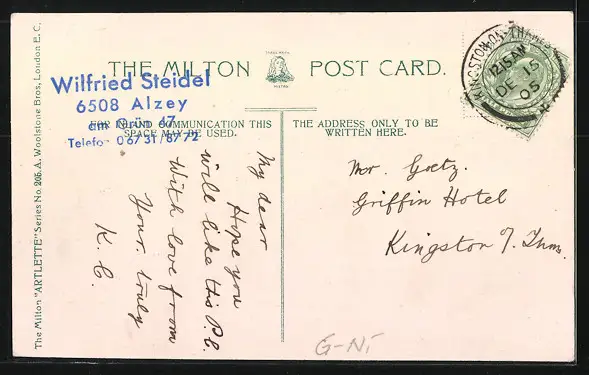 THE MILTON POST CARD.
Wilfried Steidel
6508 Alzey
am Grün 47
Telefon 06731/8772
FOR INLAND COMMUNICATION THIS
SPACE MAY BE USED.
THE ADDRESS ONLY TO BE
WRITTEN HERE.
KINGSTON-ON-THAMES
12.15 AM
DE 15
05
My dear
Hope you
will like this P.C.
With love from
Yours truly
K. C.
Mr. Goetz.
Griffin Hotel
Kingston o/. Thms.
G-Ni
The Milton "ARTLETTE" Series No. 205. A. Woolstone Bros., London E.C.